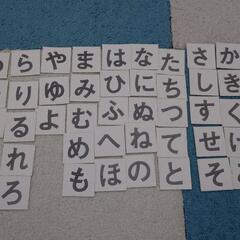 かきくけ
さしすせそ
たちつてと
なにぬねの
はひふへほ
まみむめも
やゆよ
らりるれろ